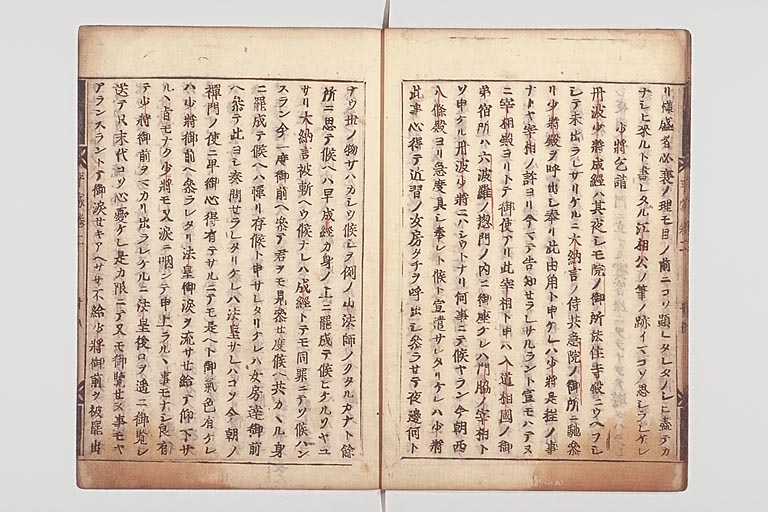 リ爍盛者必衰ノ理モ目ノ前ニコソ顕レタレタノシヒ盡テカ
ナシヒ来ルト書レタル江相公ノ筆ノ跡イマコソ思シラレケレ
少将乞請
丹波少将成経ハ其夜シモ院ノ御所法住寺殿ニウヘフシ
シテ未出ラレサリケルニ大納言ノ侍共急院ノ御所ニ馳参
リ少将殿ヲ呼出シ奉リ此由角ト申ケレハ少将是程ノ事
ナトヤ宰相ノ許ヨリ今マテ告知セラレサルラント宣モハテヌ
ニ宰相殿ヨリトテ御使アリ此宰相ト申ハ入道相國ノ御
弟宿所ハ六波羅ノ惣門ノ内ニ御座ケレハ門脇ノ宰相ト
ソ申ケル丹波少将ニハシウトナリ何事ニテ候ヤラン今朝西
八條殿ヨリ急度具シ奉レト候ト宣遣サレタリケレハ少将
此事心得テ近習ノ女房タチヲ呼出シ参ラセテ夜邊何ト
ナウ世ノ物サハカシウ候シヲ例ノ山法師ノクタルカナト餘
所ニ思テ候ヘハ早成経カ身ノ上ニ罷成テ候ヒケルソヤユ
サリ大納言被斬ヘウ候ナレハ成経トテモ同罪ニテソ候ハン
スラン今一度御前ヘ参テ君ヲモ見参セ度候ヘ共カヽル身
ニ罷成テ候ヘハ憚リ存候ト申サレタリケレハ女房達御前
ヘ参テ此ヨシ奏問セラレタリケレハ法皇サレハコソ今朝ノ
禅門ノ使ニ早御心得有テサルニテモ是ヘト御氣色有ケレ
ハ少将御前ヘ参ラレタリ法皇御涙ヲ流サセ給テ仰下サ
ルヽ旨モナク少将モ又涙ニ咽ンテ申上ラルヽ事モナシ良有
テ少将御前ヲマカリ出ラレケルニ法皇後ロヲ遥ニ御覧シ
送テ只末代コソ心憂ケレ是カ限ニテ又モ御覧セヌ事モヤ
アランスラントテ御涙セキアヘサセ不給少将御前ヲ被罷出